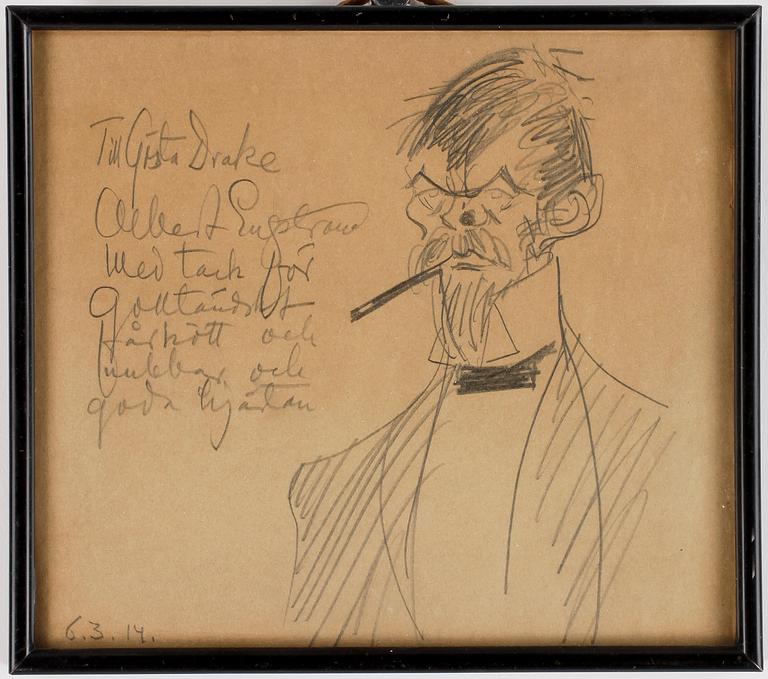 Till Gösta Drake
Albert Engström
Med tack för
Gottländskt
fårkött och
nubbar och
goda hjärtan
6.3.14.